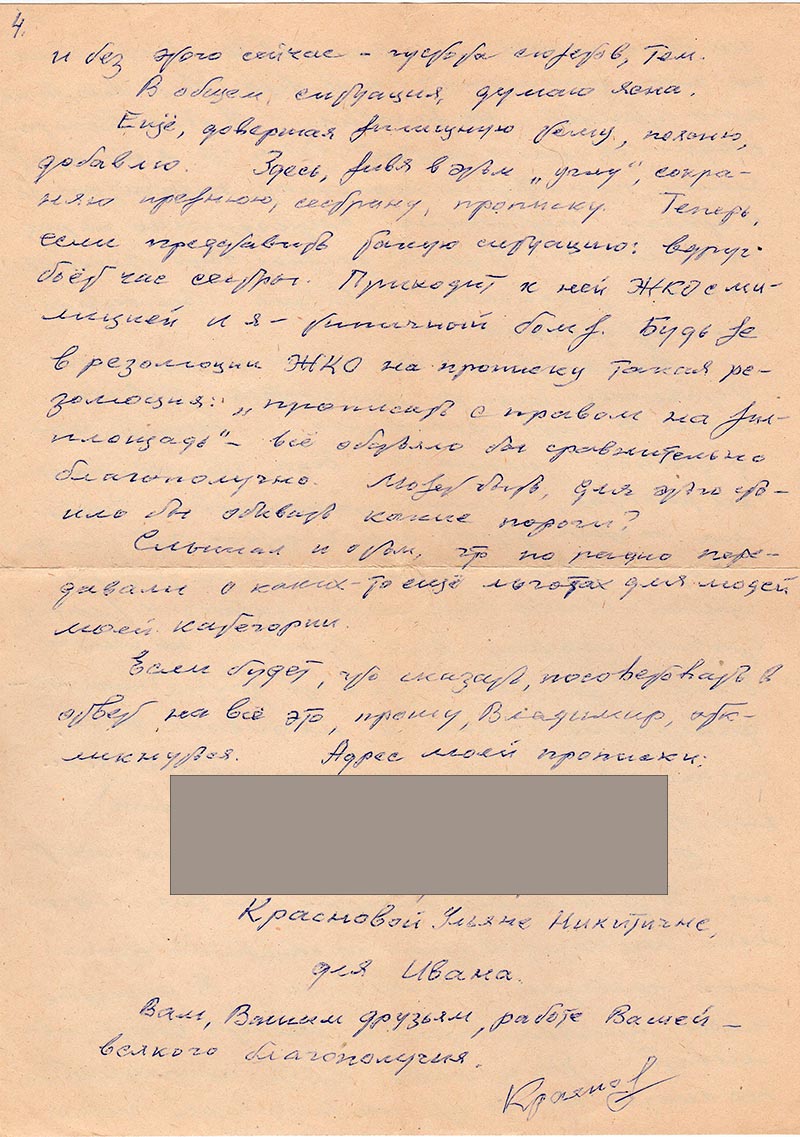 4.
и без этого сейчас – густота сюжетов, тем.
В общем, ситуация, думаю ясна.
Ещё, довершая жилищную тему, поясню,
добавлю. Здесь, живя в этом „углу“, сохра-
няю прежнюю, сестрину, прописку. Теперь,
если представить такую ситуацию: вдруг
бьёт час сестры. Приходит к ней ЖКО с ми-
лицией и я – типичный бомж. Будь же
в резолюции ЖКО на прописку такая ре-
золюция: „прописать с правом на жил-
площадь“ – всё обстояло бы сравнительно
благополучно. Может быть, для этого сто-
ило бы обивать какие пороги?
Слышал и о том, что по радио пере-
давали о каких-то ещё льготах для людей
моей категории.
Если будет, что сказать, посоветовать в
ответ на всё это, прошу, Владимир, отк-
ликнуться. Адрес моей прописки:
Красновой Ульяне Никитичне,
для Ивана.
Вам, Вашим друзьям, работе Вашей –
всякого благополучия.